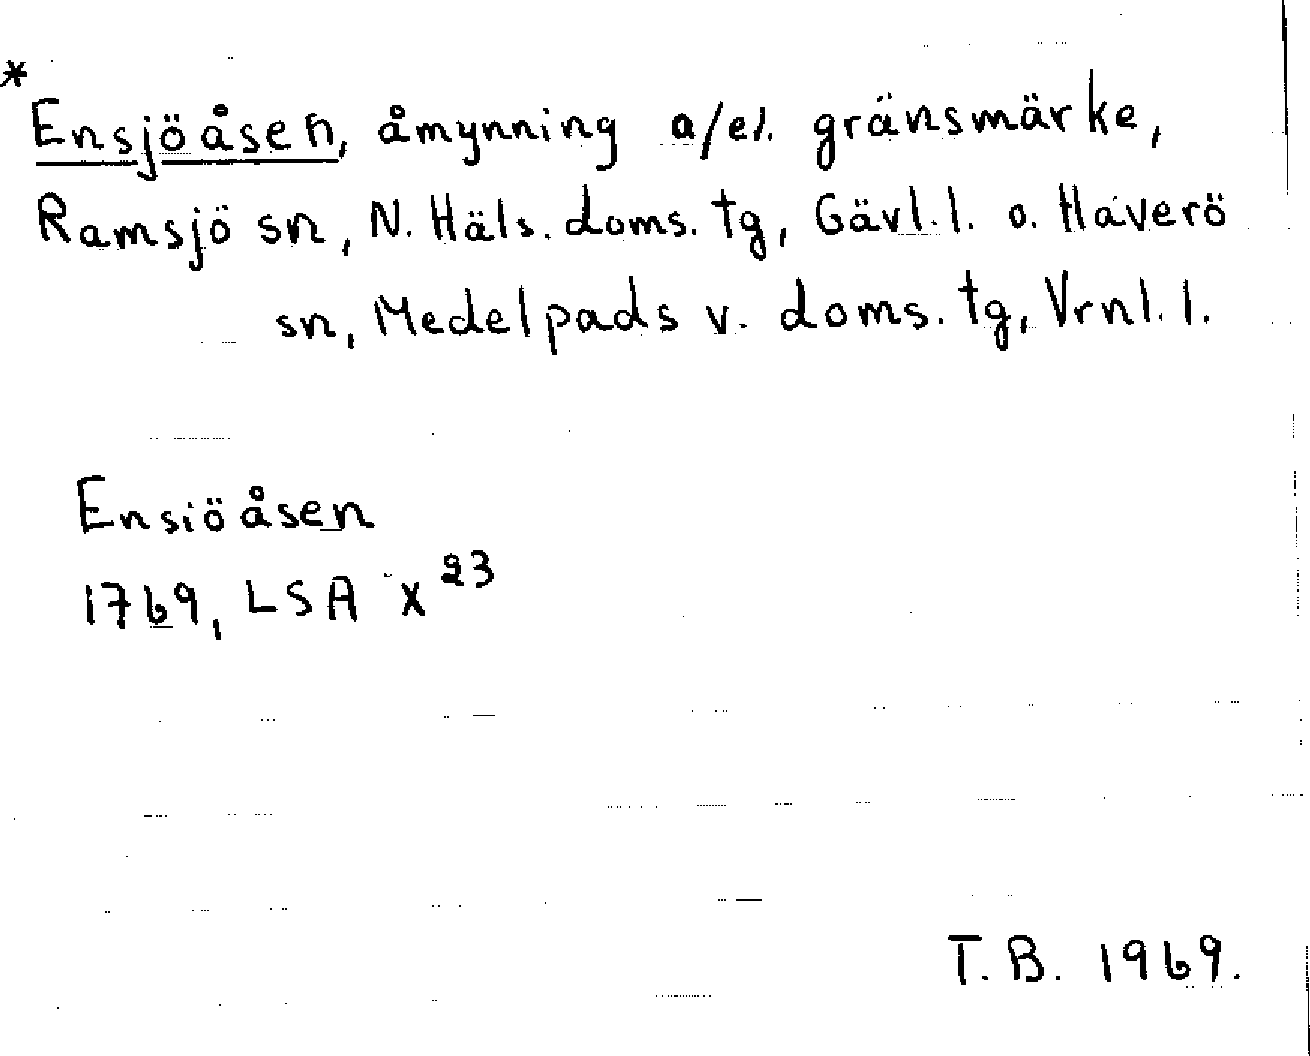 *
Ensjöåsen, åmynning a/el. gränsmärke,
Ramsjö sn, N. Häls. doms. tg, Gävl. l. o. Haverö
sn, Medelpads v. doms. tg, Vrnl. l.
Ensiöåsen
1769, LSA X 23
T. B. 1969.